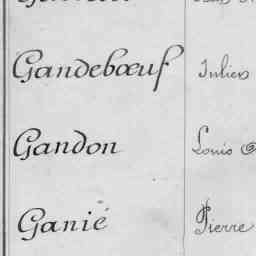 Gandebœuf Julien
Gandon Louis
Ganié Pierre